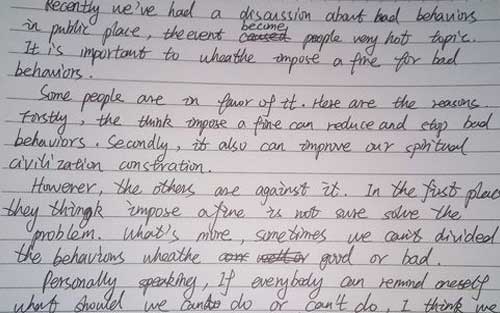 Recently we've had a discussion about bad behaviors
in public place, the event becomes people very hot topic.
It is important to wheathe impose a fine for bad
behaviors.
Some people are in favor of it. Here are the reasons.
Forstly, the think impose a fine can reduce and stop bad
behaviors. Secondly, it also can improve our spiritual
civilization constration.
However, the others are against it. In the first place
they thingk impose a fine is not sure solve the
problem. What's more, sometimes we can't divided
the behaviors wheathe good or bad.
Personally speaking, If everybody can remind oneself
what should we do or can't do, I think we